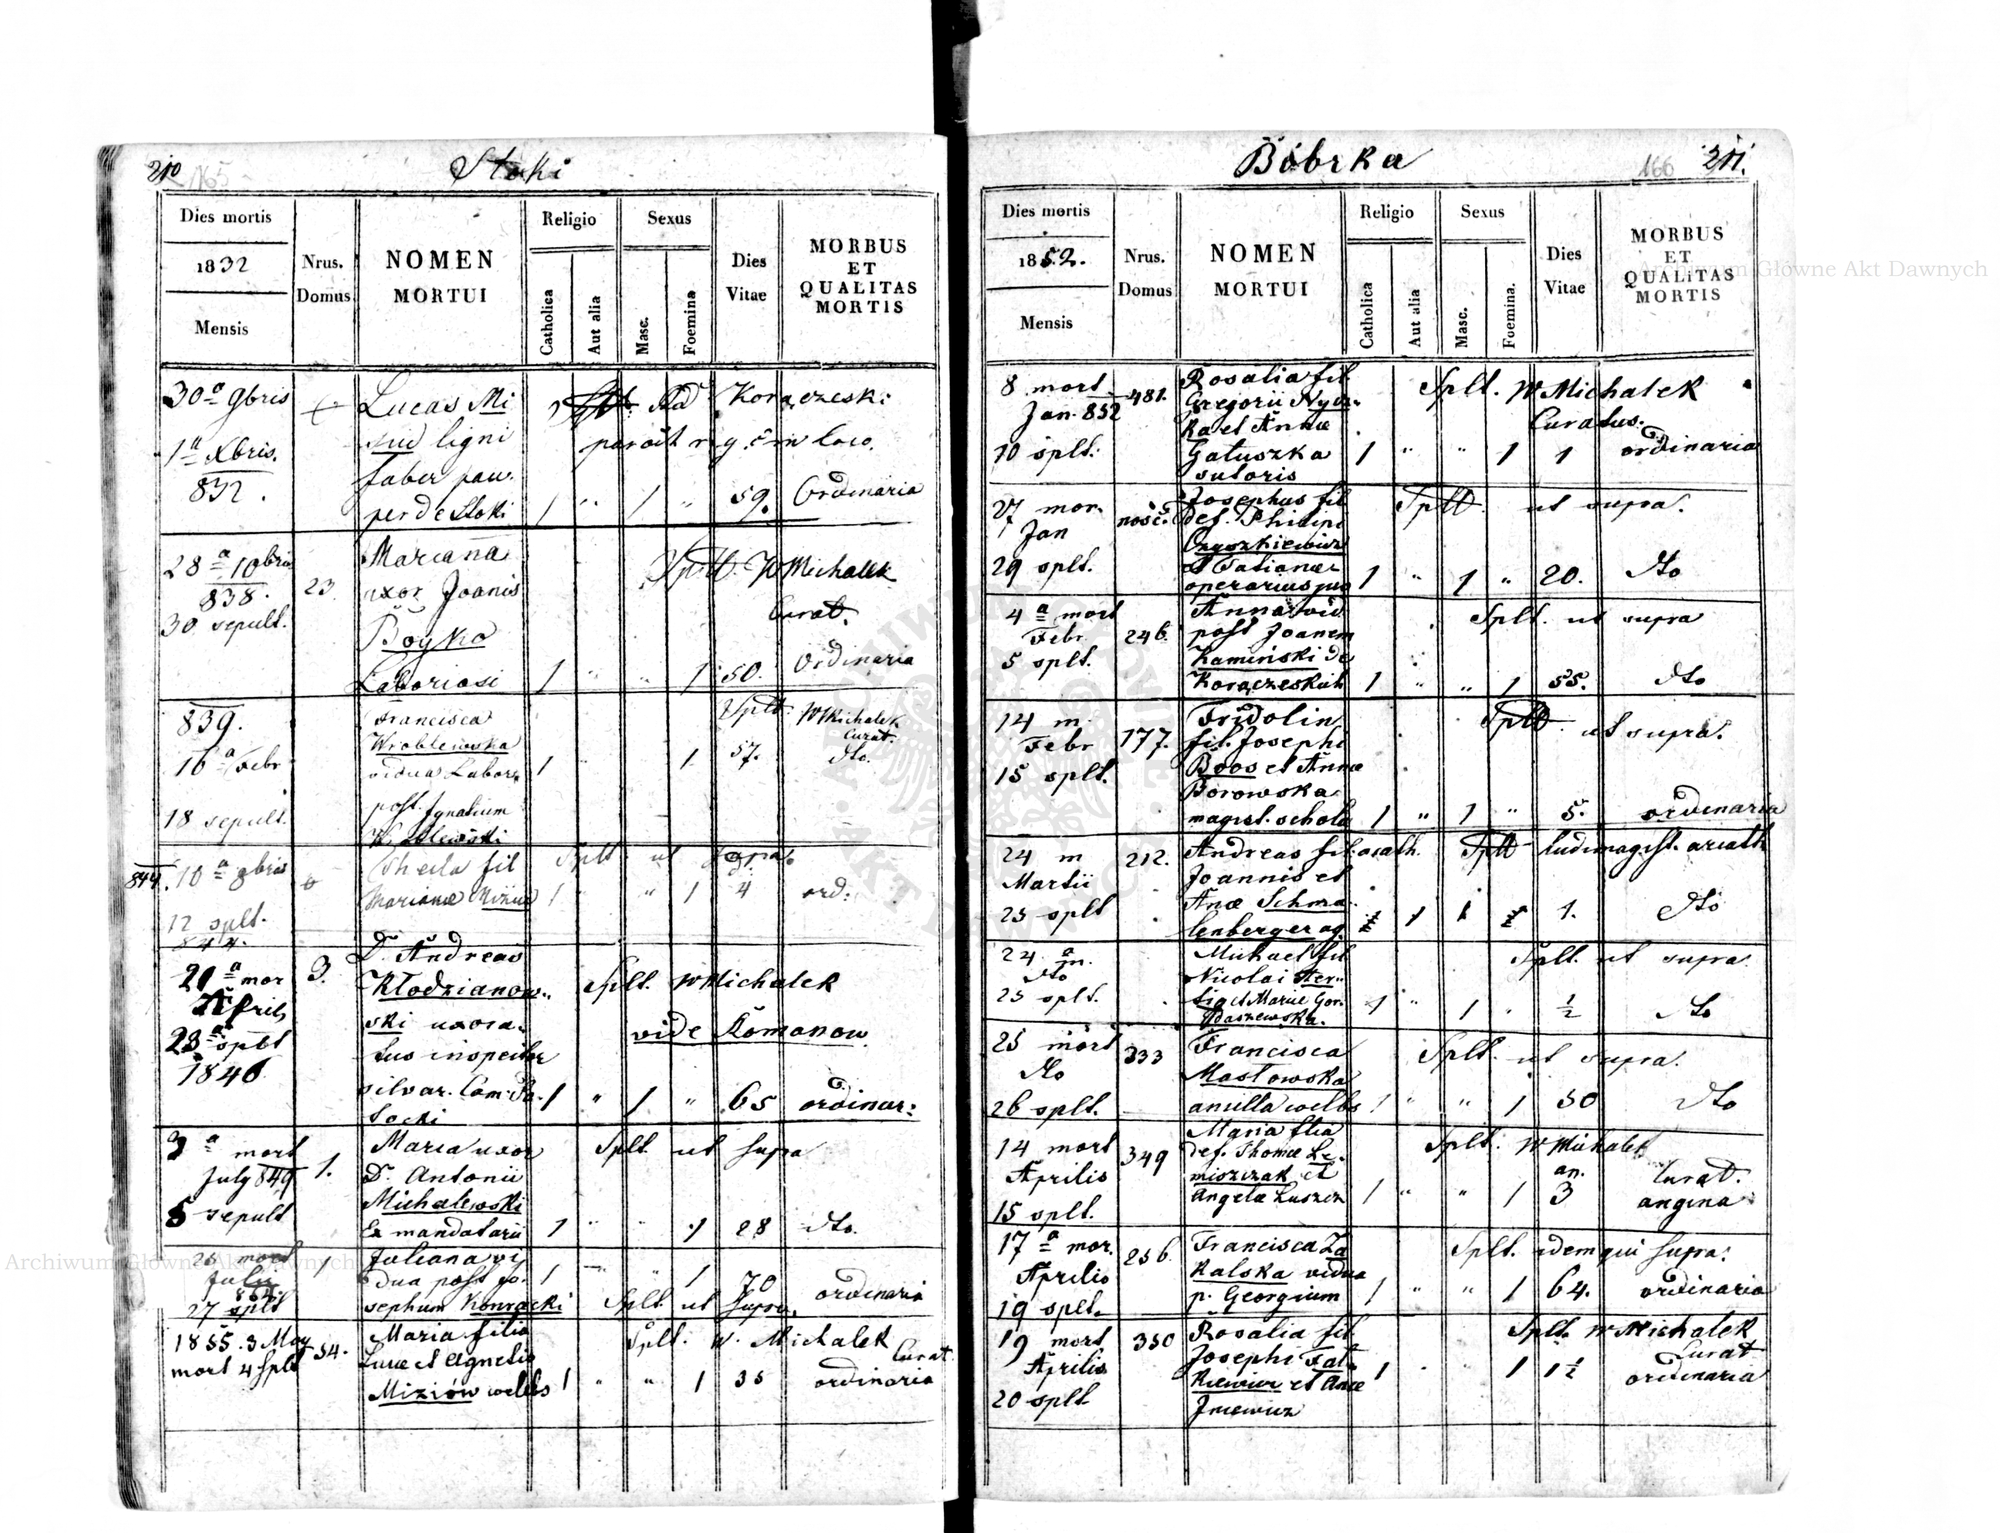 210
165
Stoki
Dies mortis
1832
Mensis
Nrus. Domus
NOMEN MORTUI
Religio
Catholica
Aut alia
Sexus
Masc.
Foemina
Dies Vitae
MORBUS ET QUALITAS MORTIS
30a 9bris
Lucas Mi
Korączeski
1a Xbris.
ligni
loco.
832.
faber pau.
per de Stoki
1 " 1 " 59. Ordinaria
28a 10bris
838.
30 sepult.
23.
Mariana
uxor Joanis
Boyko
Laboriosi
Splt. W Michalek
Curat.
1 " " 1 50. Ordinaria
839.
16a Febr
18 sepult.
Francisca
Wroblewska
vidua Labor.
post Ignatium
Splt. W Michalek
Curat.
1 1 57. dto.
844. 10a 9bris
12 splt.
844.
Thecla fil
Marianæ
Splt ut supra
1 " 1 4 ord:
21a mor
April
23a splt
1846
3.
D. Andreas
Kłodzianow-
ski uxora-
tus inspector
silvar. Com. Po
tocki
Splt. W Michalek
vide Romanow
1 " 1 " 65 ordinar:
3a mort
July 849
5 sepult
1.
Maria uxor
D. Antonii
Michalewski
Ex mandatarii
Splt. ut supra
1 " " 1 28 dto.
26 mort
Julii
27 splt
1
Juliana vi
dua post Jo-
sephum Konracki
1 " " 1 70 ordinaria
Splt. ut supra.
1855. 3 May
mort 4 splt
54.
Maria filia
Lucæ et Agnetis
Mizión
Splt. W. Michalek
Curat
1 " " 1 35 ordinaria
Bóbrka
166
211.
Dies mortis
1852.
Mensis
Nrus. Domus
NOMEN MORTUI
Religio
Catholica
Aut alia
Sexus
Masc.
Foemina.
Dies Vitae
MORBUS ET QUALITAS MORTIS
8 mort
Jan. 852
10 splt.
481.
Rosalia fil
Gregorii
ka et Annæ
Gałuszka
sutoris
Splt. W Michalek
Curatus.
1 " " 1 1 ordinaria
27 mor.
Jan
29 splt.
Josephus fil
def. Philipi
Onyszkiewicz
et Tatianæ
operarius
Splt ut supra.
1 " 1 " 20. dto
4a mort
Febr
5 splt.
246.
Anna vid
post Joanem
Kamiński de
Korączeskich
Splt. ut supra
1 " " 1 55. dto
14 m
Febr
15 splt.
177.
Fridolin
fil. Josephi
Boos et Annæ
Borowska
magist. schola
Splt ut supra.
1 " 1 " 5. ordinaria
24 m
Martii
25 splt
212.
Andreas fil. acath.
Joannis et
Anæ Schma
lenberger
Splt ludimagist. acath
1 1 1. dto
24a m.
dto
25 splt.
Michael fil
Nicolai
et Mariæ Gor
daszewska.
Splt. ut supra
1 " 1 " ½ dto
25 mort
dto
26 splt.
333
Francisca
Masłowska
ancilla
Splt. ut supra.
1 " " 1 50 dto
14 mort
Aprilis
15 splt.
349
Maria filia
def. Thomæ Le-
miszczak et
Angelæ
Splt. W Michalek
Curat.
an.
1 " " 1 3 angina
17a mor.
Aprilis
19 splt.
256.
Francisca Za
kalska vidua
p. Georgium
Splt. idem qui supra.
1 " " 1 64. ordinaria
19 mort
Aprilis
20 splt
350
Rosalia fil
Josephi Fat-
kiewicz et Anæ
Splt. W Michalek
Curat
1 " " 1 1½ ordinaria
Archiwum Główne Akt Dawnych